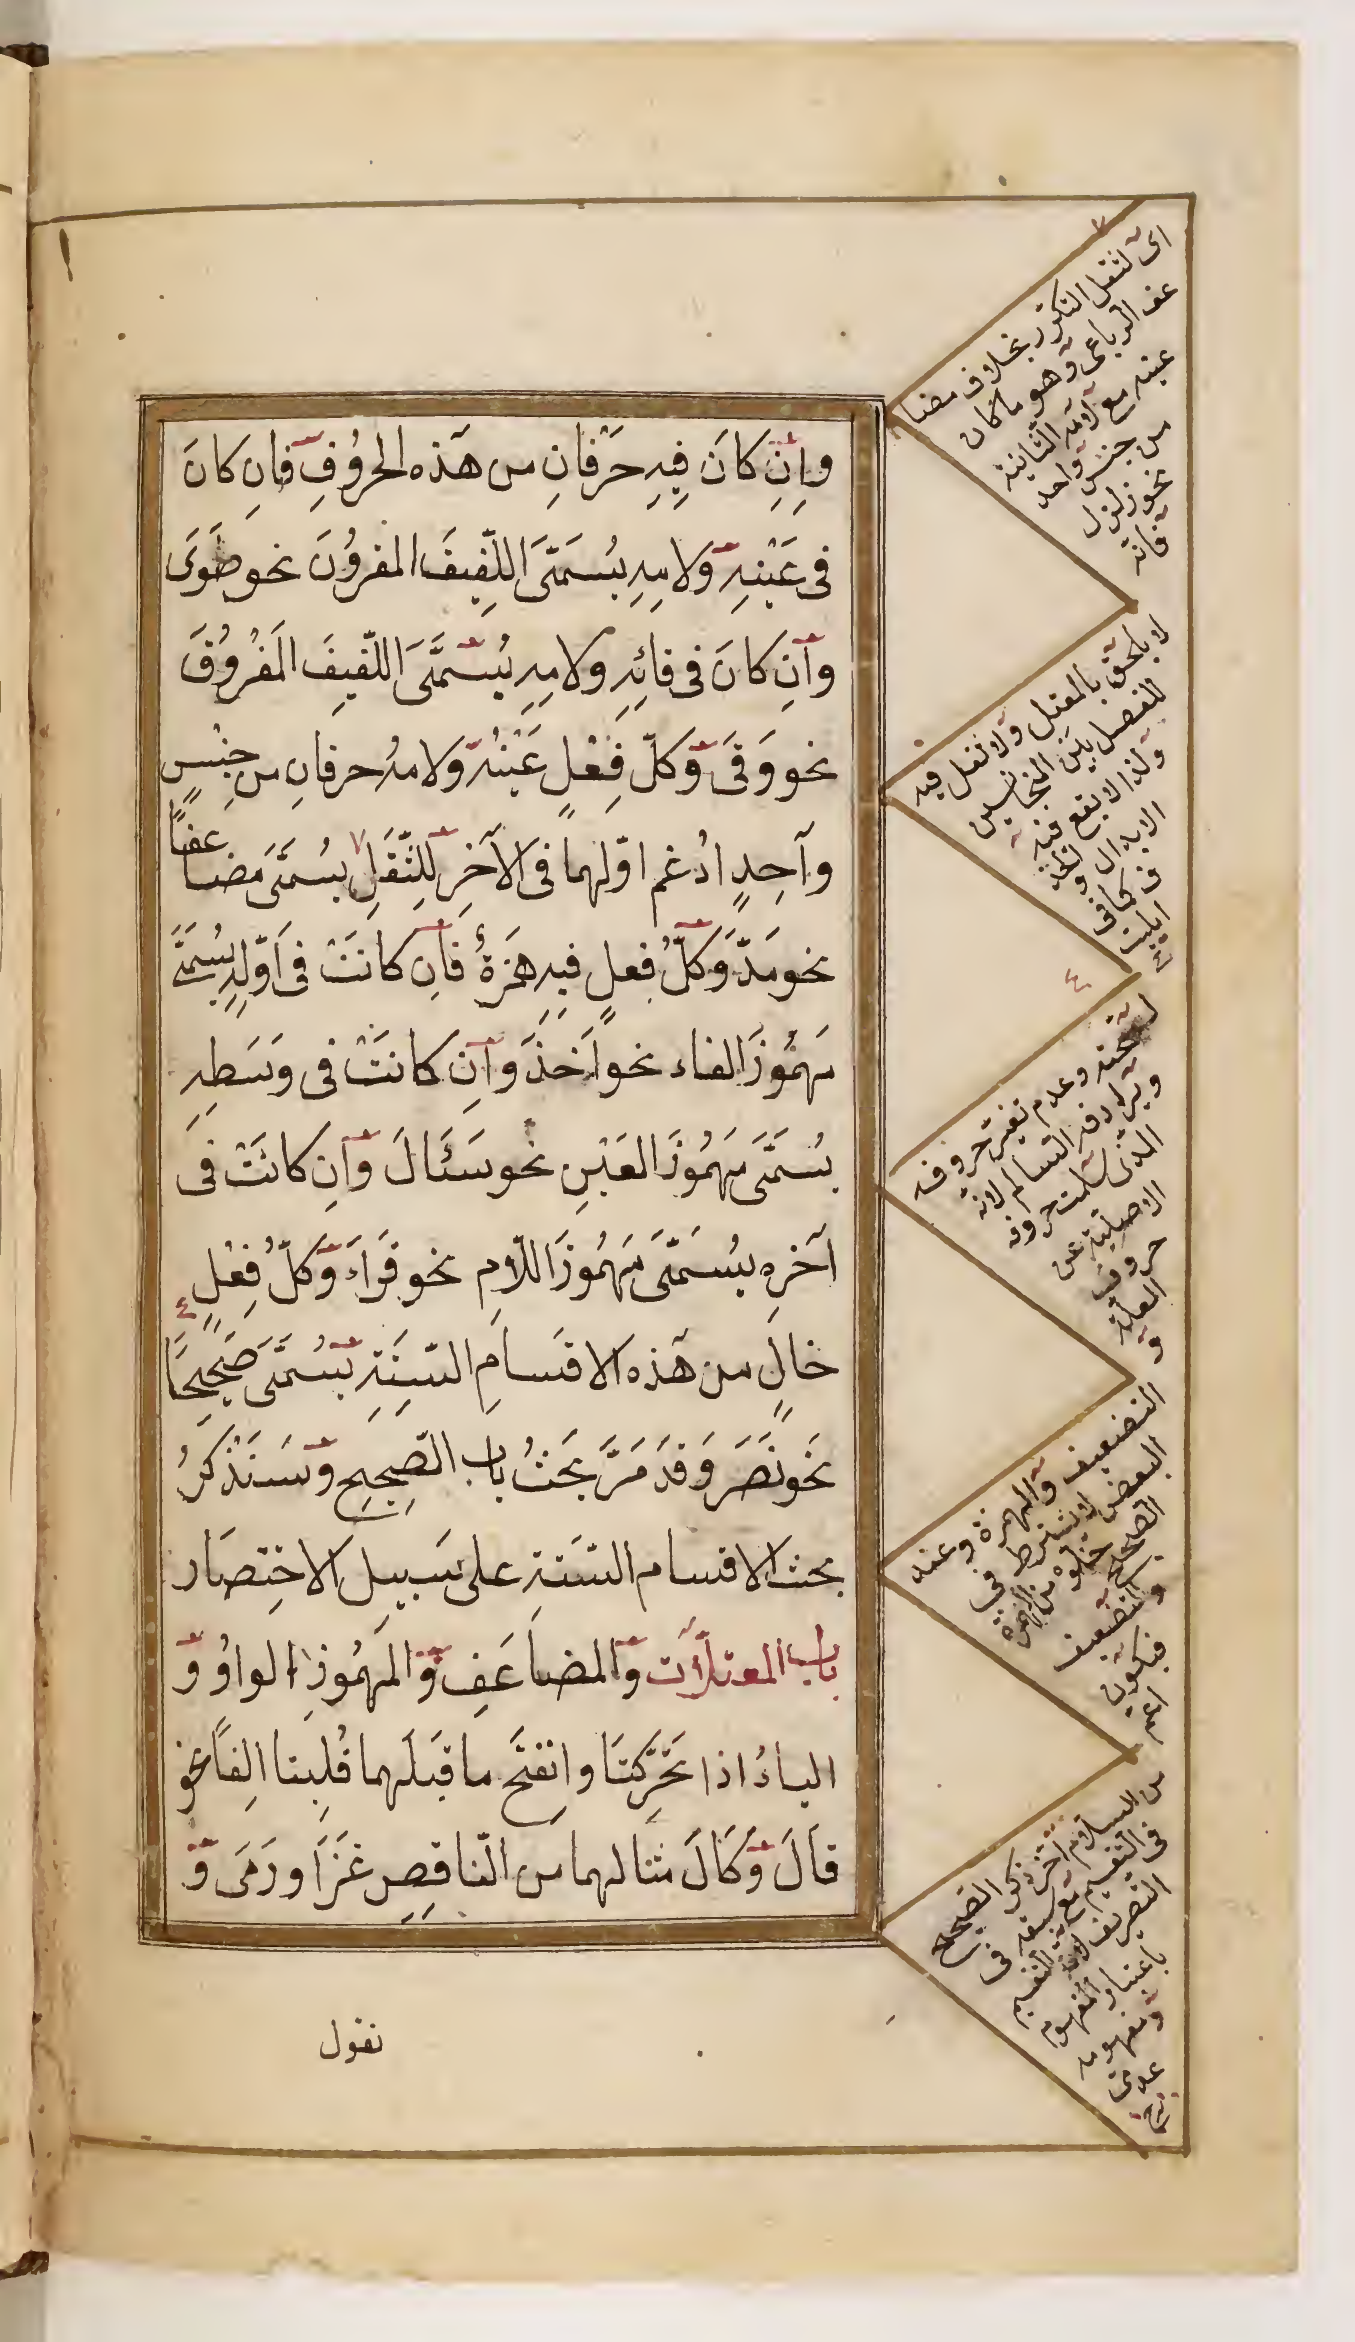 وَاِنِ كانَ فِيهِ حَرْفانِ من هذه الحرُوُفِ فَانِ كانَ
فى عَيْنِهِ وَلامِهِ يُسَمَّى اللَّفِيفَ المقروُنَ نحو طَوَىَ
وَانِ كانَ فى فائِهِ ولامِهِ يُسَمَّىَ اللّفيفَ المَفْروُقَ
نحو وَقَى وَكلّ فِعْلٍ عَيْنُهُ وَلامُهُ حرفانِ من جِنْسٍ
وآحِدٍ ادُغم اوّلهما فى الآخِرِ للثِّقَلِ يسُمَّىَ مضاعفاً
نحو مَدَّ وَكلّ فِعلٍ فيهِ هَمزَةٌ فَاِن كانَتْ فى اَوّلِهِ يُسَمَّىَ
مَهمُوُزَ الفاء نحو اَخَذَ وَانِ كانَتْ فى وَسَطِهِ
يُسَمَّىَ مَهمُوُزَ العَيْنِ نحو سَئَالَ وَانِ كانَتْ فى
آخرِهِ يُسَمَّىَ مَهمُوُزَ اللّامِ نحو قَرَاَءَ وَكلّ فِعْلٍ
خالٍ من هذه الاقسامِ السّتَةِ يُسَمَّىَ صَحيحًا
نَحو نَصَرَ وَقدَ مَرَّ بَحَثُ باب الصّحِيحِ وَسَنَذْكرُ
بحث الاقسام السّتة على سَبيل الاختِصَار
باب المعتلاّت وَالمضاَعَفِ وَالمَهمُوُزِ الواوُ وَ
الياءُ اذا تَحَرَّكتَا وانفتَحَ ما قبَلَهما قُلِبتا الِفاً نحو
قاَلَ وَكاَلَ مثالهما من النّاقِصِ غَزَا ورَمَى وَ
نقول
اى لثقل التكرّر بخلاف مضا
عف الرباعى وهو ما كان
عينه مع لامه الثانية
من جنس واحد
نحو زلزل
فانه
لا يلحق بالمعتل ولا ثقل فيه
للفصل بين المتجانسين
ولذا لا يقع فيه
الابدال والحذ
ف كما فى
امليت
لصحّته وعدم تغيّر حروفه
ويرادفه السالم لانه
الذى سلمت حروفه
الاصليّة عن
حروف
العلة
و
التضعيف والهمزة وعند
البعض لا يشترط فى
الصحيح خلوه من الهمزة
والتضعيف
فيكون
اعم
من السالم اخّر ذكر الصحيح
فى التقسيم مع سبقه فى
التصريف لانّ التقسيم
باعتبار المفهوم
ومفهومه
عدمىّ